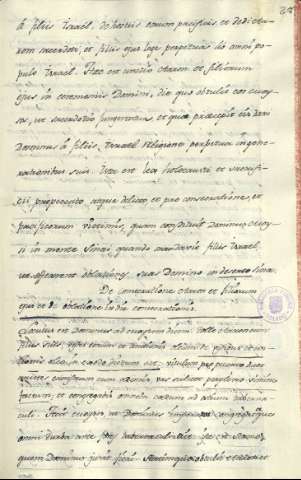 à filiis Israel, de hostiis eorum pacificis, et dedi Aa-
ron sacerdoti, et filiis ejus lege perpetua ab omni po-
pulo Israel. Haec est unctio Aaron et filiorum
ejus in ceremoniis Domini, die quo obtulit eos Moy-
ses, ut sacerdotio fungerentur, et quae praecepit eis dari
Dominus à filiis Israel religione perpetua in gene-
rationibus suis. Ista est lex holocausti et sacrifi-
cii pro peccato, atque delicto, et pro consecratione, et
pacificorum victimis, quam constituit Dominus Moy-
si in monte Sinai, quando mandavit filiis Israel,
ut offerrent oblationes suas Domino in deserto Sinai.
De consecratione Aaron et filiorum
ejus et de oblatione in die consecrationis.
Locutus est Dominus ad Moysen dicens: Tolle Aaron cum
filiis suis, vestes eorum et unctionis
vitulum pro peccato duos
arietes, canistrum cum azymis
et congregabis omnem coetum ad ostium tabernaculi.
Fecit Moyses ut Dominus imperarat, congregataque
omni turba ante fores tabernaculi ait: ipse est sermo,
quem Dominus jussit fieri. Statimque obtulit Aaron et